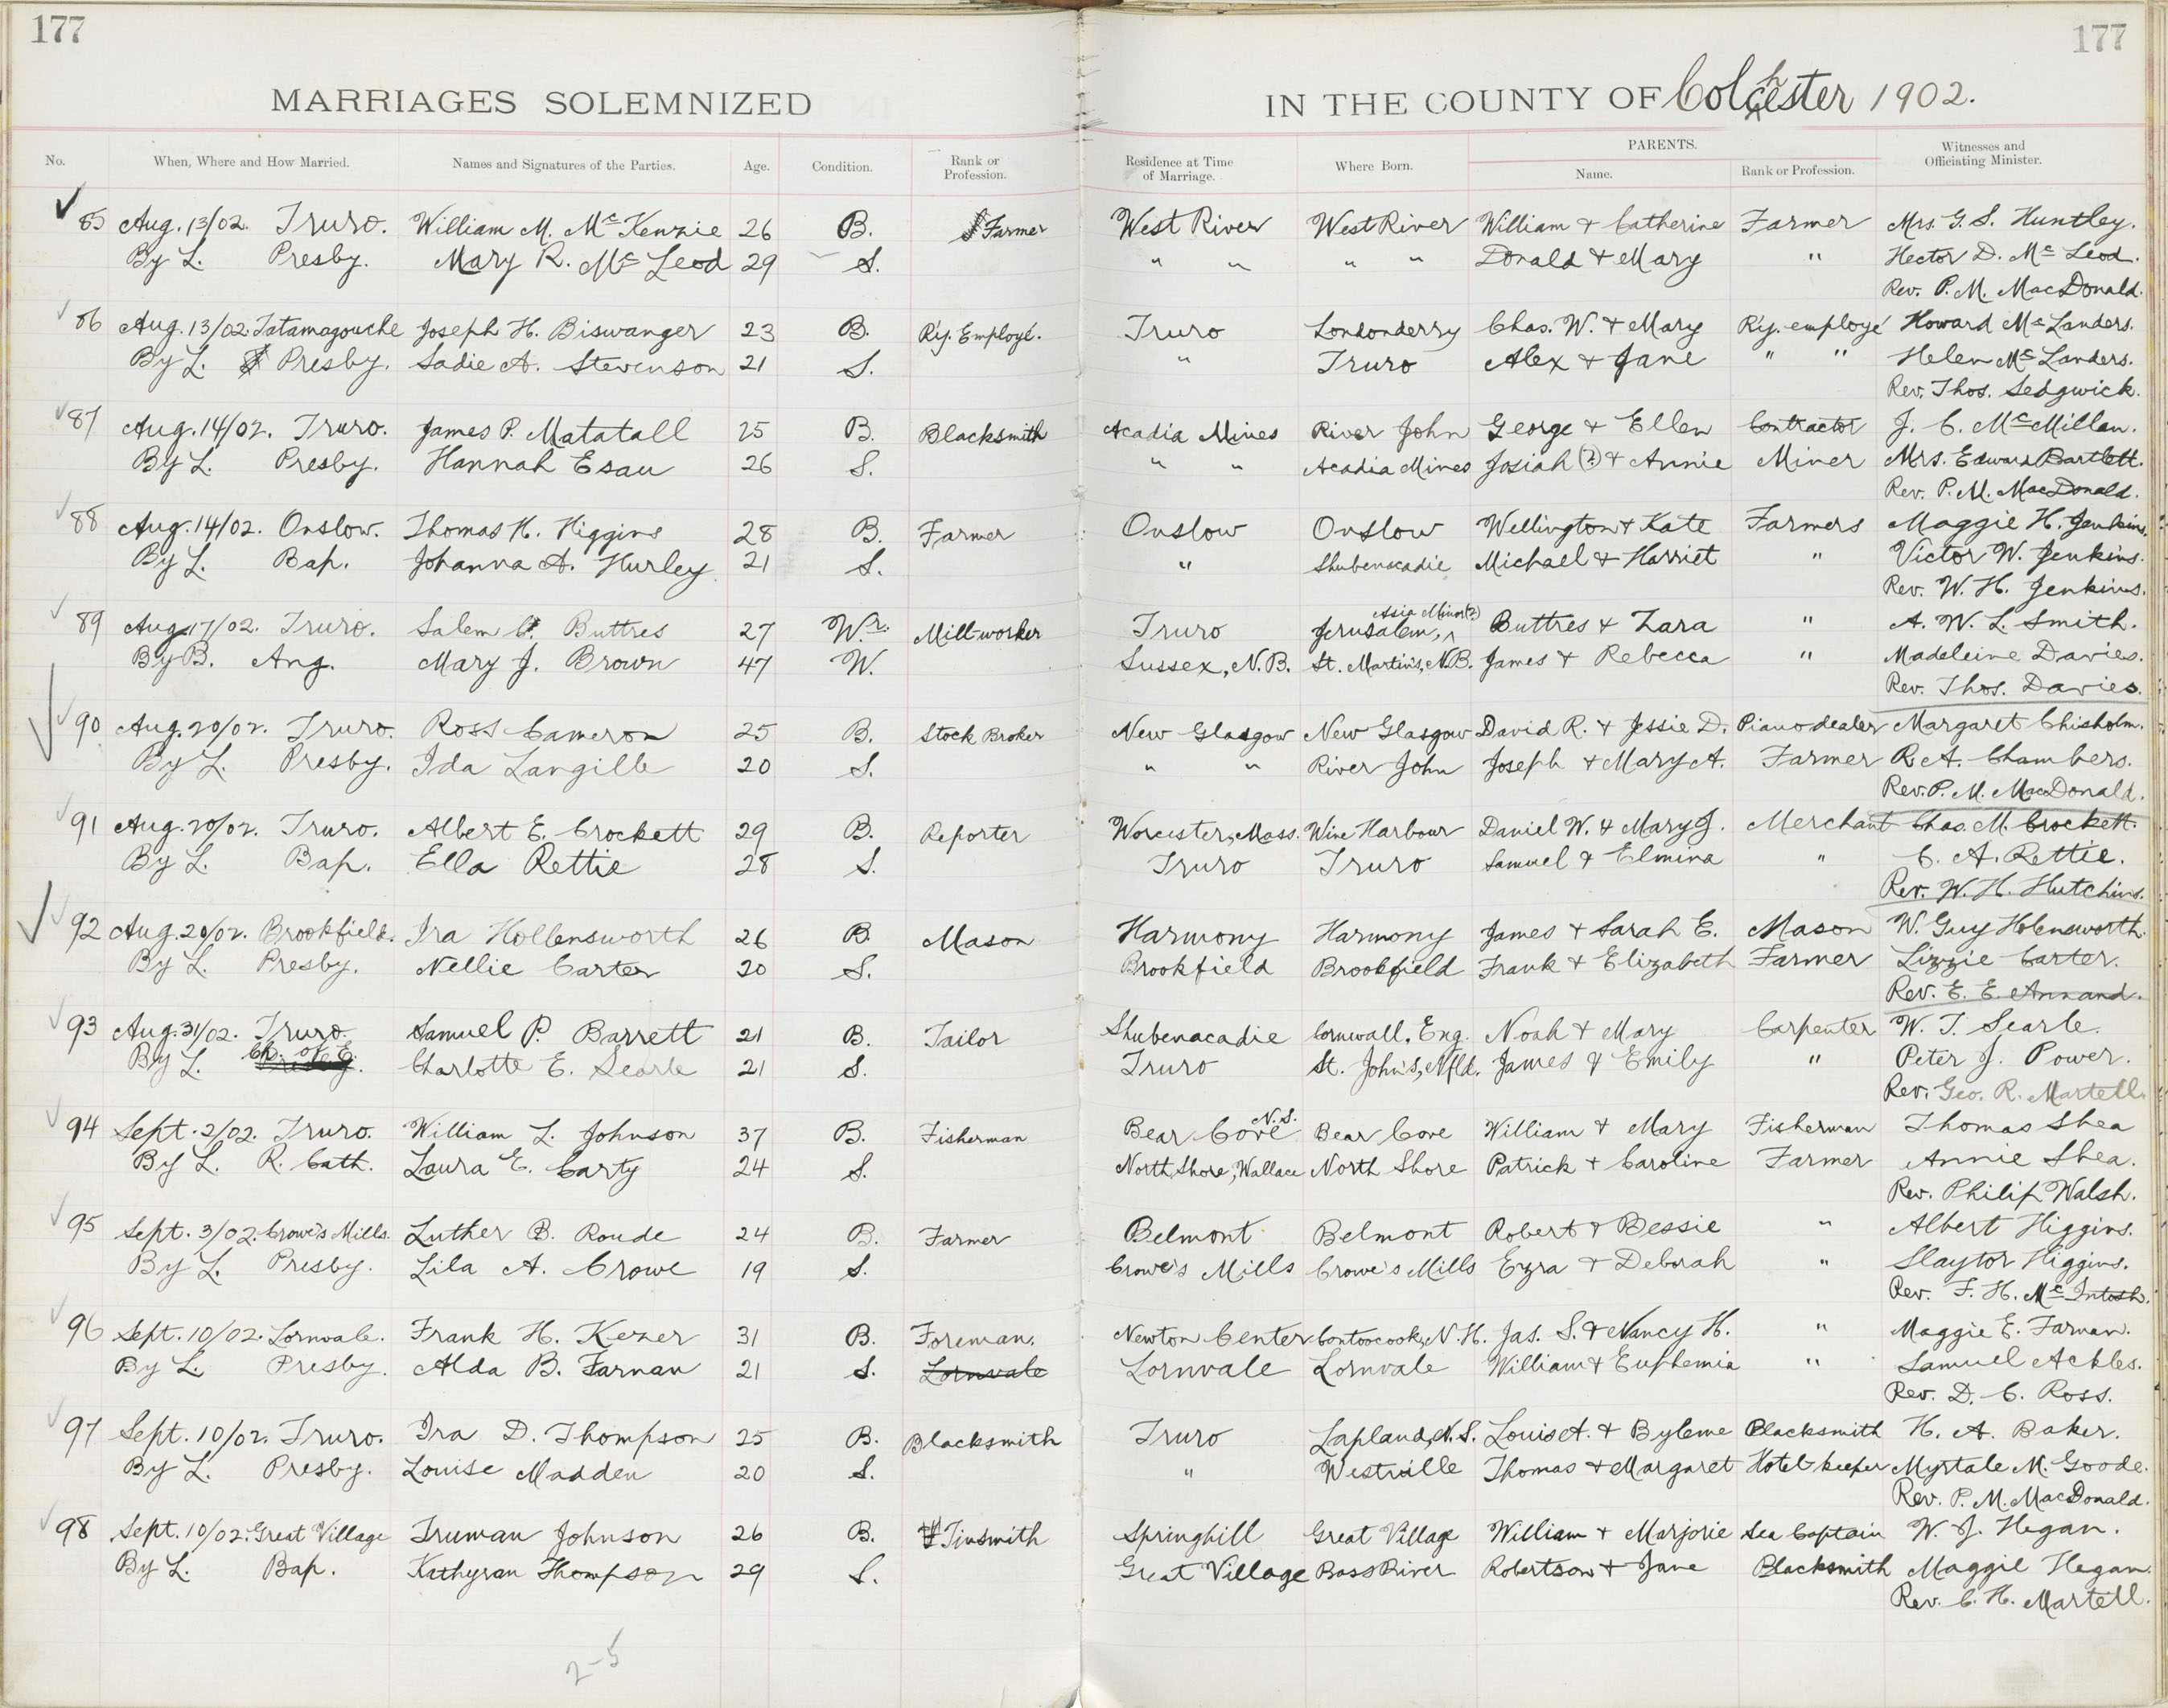 177
177
MARRIAGES SOLEMNIZED IN THE COUNTY OF Colchester 1902.
No. When, Where and How Married. Names and Signatures of the Parties. Age. Condition. Rank or Profession. Residence at Time of Marriage. Where Born. PARENTS. Name. Rank or Profession. Witnesses and Officiating Minister.
85 Aug. 13/02. Truro. William M. McKenzie 26 B. Farmer West River West River William & Catherine Farmer Mrs. G. S. Huntley.
By L. Presby. Mary R. McLeod 29 S. " " " " Donald & Mary " Hector D. McLeod.
Rev. P. M. MacDonald.
86 Aug. 13/02. Tatamagouche Joseph H. Biswanger 23 B. R'y. Employé. Truro Londonderry Chas. W. & Mary R'y. employé Howard McLanders.
By L. Presby. Sadie A. Stevenson 21 S. " Truro Alex & Jane " " Helen McLanders.
Rev. Thos. Sedgwick.
87 Aug. 14/02. Truro. James P. Matatall 25 B. Blacksmith Acadia Mines River John George & Ellen Contractor J. C. McMillan.
By L. Presby. Hannah Esau 26 S. " " Acadia Mines Josiah (?) & Annie Miner Mrs. Edward Bartlett.
Rev. P. M. MacDonald.
88 Aug. 14/02. Onslow. Thomas H. Higgins 28 B. Farmer Onslow Onslow Wellington & Kate Farmers Maggie H. Jenkins.
By L. Bap. Johanna A. Hurley 21 S. " Shubenacadie Michael & Harriet " Victor W. Jenkins.
Rev. W. H. Jenkins.
89 Aug. 17/02. Truro. Salem C. Buttres 27 Wr. Mill-worker Truro Jerusalem, Asia Minor (?) Buttres & Zara " A. W. L. Smith.
By B. Ang. Mary J. Brown 47 W. Sussex, N.B. St. Martin's, N.B. James & Rebecca " Madeleine Davies.
Rev. Thos. Davies.
90 Aug. 20/02. Truro. Ross Cameron 25 B. Stock Broker New Glasgow New Glasgow David R. & Jessie D. Piano dealer Margaret Chisholm.
By L. Presby. Ida Langille 20 S. " " River John Joseph & Mary A. Farmer R. A. Chambers.
Rev. P. M. MacDonald.
91 Aug. 20/02. Truro. Albert E. Crockett 29 B. Reporter Worcester, Mass. Wine Harbour Daniel W. & Mary J. Merchant Chas. M. Crockett.
By L. Bap. Ella Rettie 28 S. Truro Truro Samuel & Elmina " C. A. Rettie.
Rev. W. H. Hutchins.
92 Aug. 20/02. Brookfield. Ira Hollensworth 26 B. Mason Harmony Harmony James & Sarah E. Mason W. Guy Holensworth.
By L. Presby. Nellie Carter 20 S. Brookfield Brookfield Frank & Elizabeth Farmer Lizzie Carter.
Rev. E. E. Annand.
93 Aug. 31/02. Truro. Samuel P. Barrett 21 B. Tailor Shubenacadie Cornwall, Eng. Noah & Mary Carpenter W. T. Searle.
By L. Ch. of E. Charlotte E. Searle 21 S. Truro St. John's, Nfld. James & Emily " Peter J. Power.
Rev. Geo. R. Martell.
94 Sept. 2/02. Truro. William L. Johnson 37 B. Fisherman Bear Cove N.S. Bear Cove William & Mary Fisherman Thomas Shea
By L. R. Cath. Laura E. Carty 24 S. North Shore, Wallace North Shore Patrick & Caroline Farmer Annie Shea.
Rev. Philip Walsh.
95 Sept. 3/02. Crowe's Mills. Luther B. Roude 24 B. Farmer Belmont Belmont Robert & Bessie " Albert Higgins.
By L. Presby. Lila A. Crowe 19 S. Crowe's Mills Crowe's Mills Ezra & Deborah " Slaytor Higgins.
Rev. F. H. McIntosh.
96 Sept. 10/02. Lornvale. Frank H. Kezer 31 B. Foreman. Newton Center Contoocook, N.H. Jas. S. & Nancy H. " Maggie E. Farnan.
By L. Presby. Alda B. Farnan 21 S. Lornvale Lornvale Lornvale William & Euphemia " Samuel Ackles.
Rev. D. C. Ross.
97 Sept. 10/02. Truro. Ira D. Thompson 25 B. Blacksmith Truro Lapland, N.S. Louis A. & Byleme Blacksmith H. A. Baker.
By L. Presby. Louise Madden 20 S. " Westville Thomas & Margaret Hotel-keeper Myrtale M. Goode.
Rev. P. M. MacDonald.
98 Sept. 10/02. Great Village Truman Johnson 26 B. Tinsmith Springhill Great Village William & Marjorie Sea Captain W. J. Hegan.
By L. Bap. Kathyran Thompson 29 S. Great Village Bass River Robertson & Jane Blacksmith Maggie Hegan.
Rev. C. H. Martell.
2-5